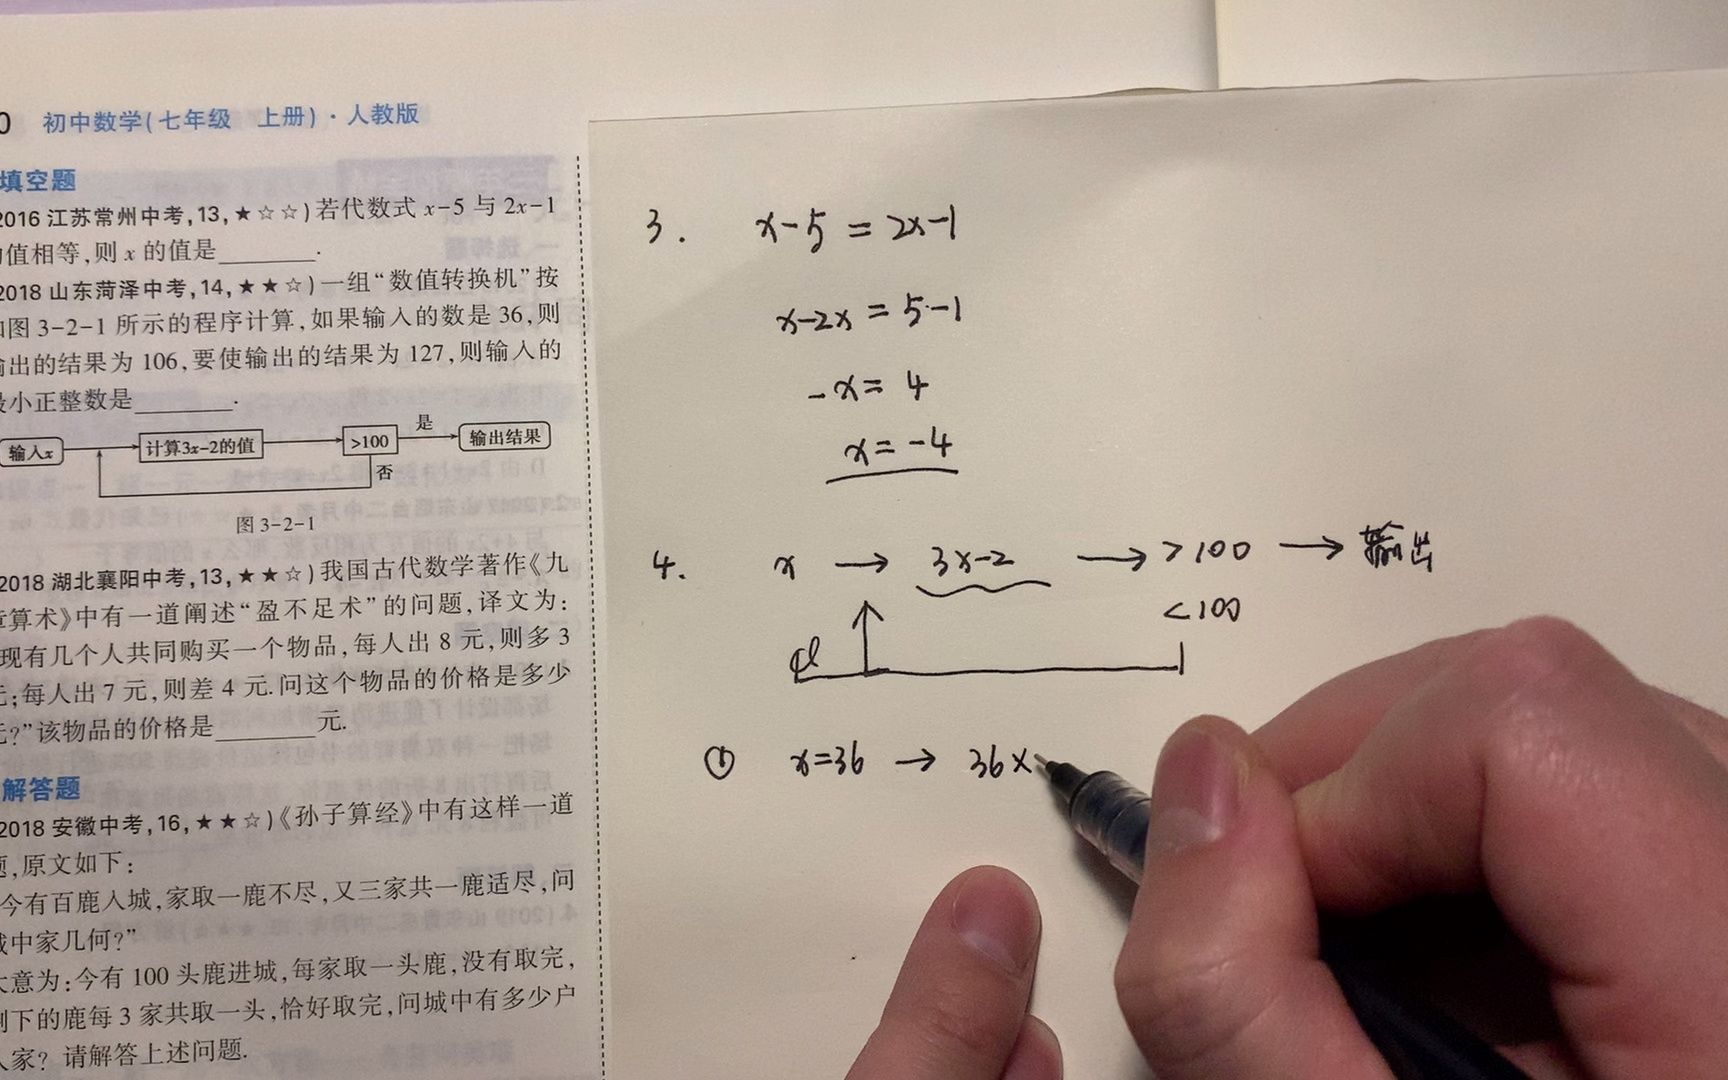 0 初中数学(七年级 上册)·人教版
填空题
2016江苏常州中考,13,★☆☆)若代数式x-5与2x-1
值相等,则x的值是________.
2018山东菏泽中考,14,★★☆)一组“数值转换机”按
图3-2-1所示的程序计算,如果输入的数是36,则
出的结果为106,要使输出的结果为127,则输入的
小正整数是________.
输入x
计算3x-2的值
>100
是
输出结果
否
图3-2-1
2018湖北襄阳中考,13,★★☆)我国古代数学著作《九
算术》中有一道阐述“盈不足术”的问题,译文为:
现有几个人共同购买一个物品,每人出8元,则多3
;每人出7元,则差4元.问这个物品的价格是多少
?”该物品的价格是________元.
解答题
2018安徽中考,16,★★☆)《孙子算经》中有这样一道
题,原文如下:
今有百鹿入城,家取一鹿不尽,又三家共一鹿适尽,问
城中家几何?”
大意为:今有100头鹿进城,每家取一头鹿,没有取完,
下的鹿每3家共取一头,恰好取完,问城中有多少户
人家?请解答上述问题.
3. x-5=2x-1
x-2x=5-1
-x=4
x=-4
4. x → 3x-2 → >100 → 输出
<100
① x=36 → 36×